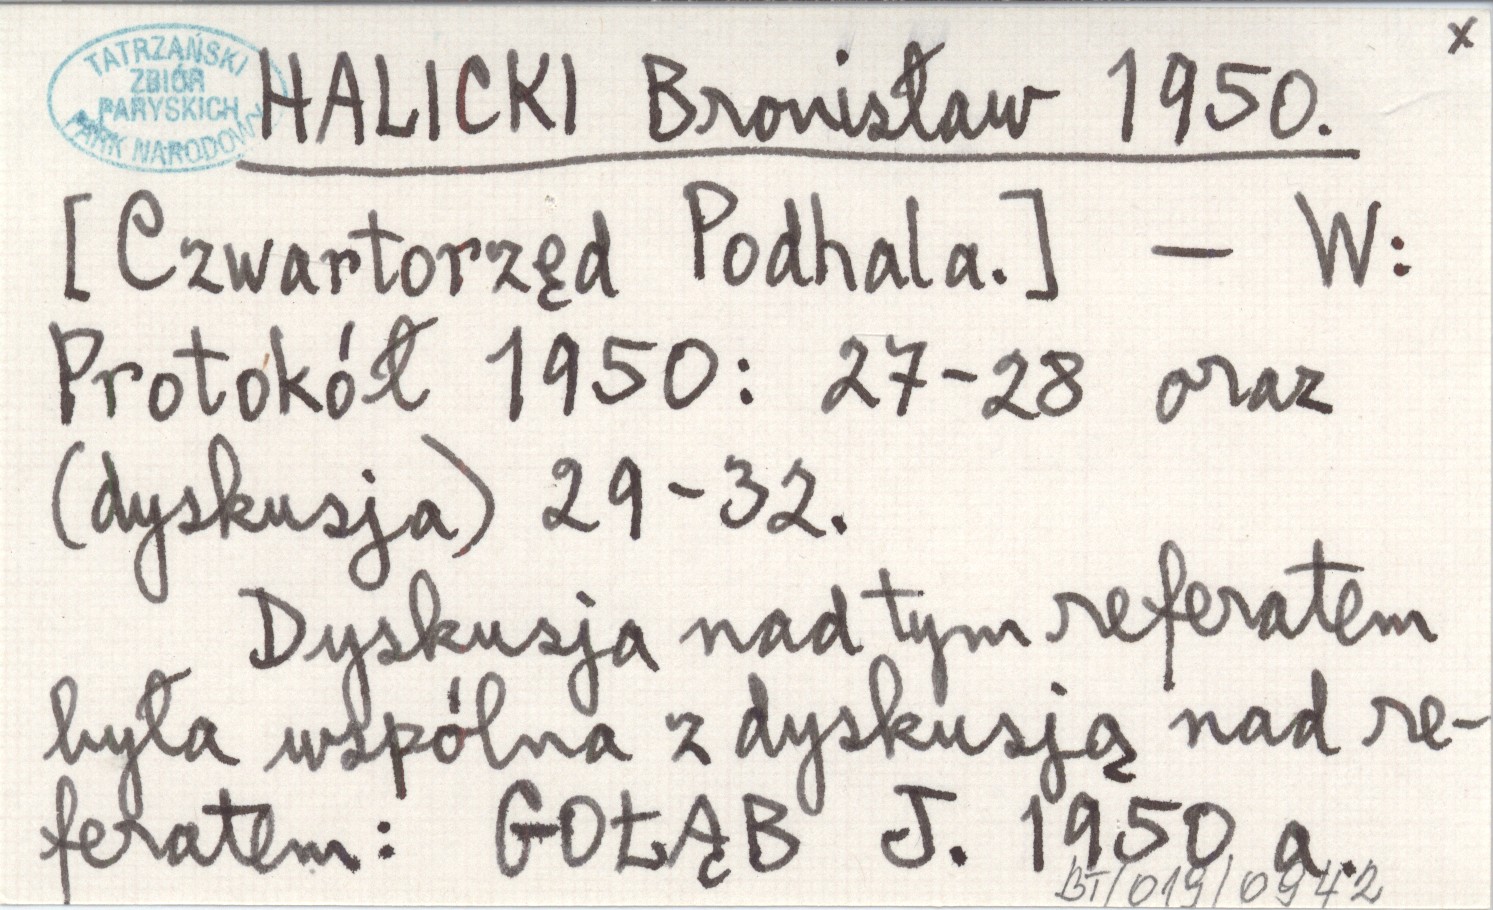 x
TATRZAŃSKI
ZBIÓR
PARYSKICH
PARK NARODOWY
HALICKI Bronisław 1950.
[Czwartorzęd Podhala.] — W:
Protokół 1950: 27-28 oraz
(dyskusja) 29-32.
Dyskusja nad tym referatem
była wspólna z dyskusją nad re-
feratem: GOŁĄB J. 1950 a.
BT/019/0942